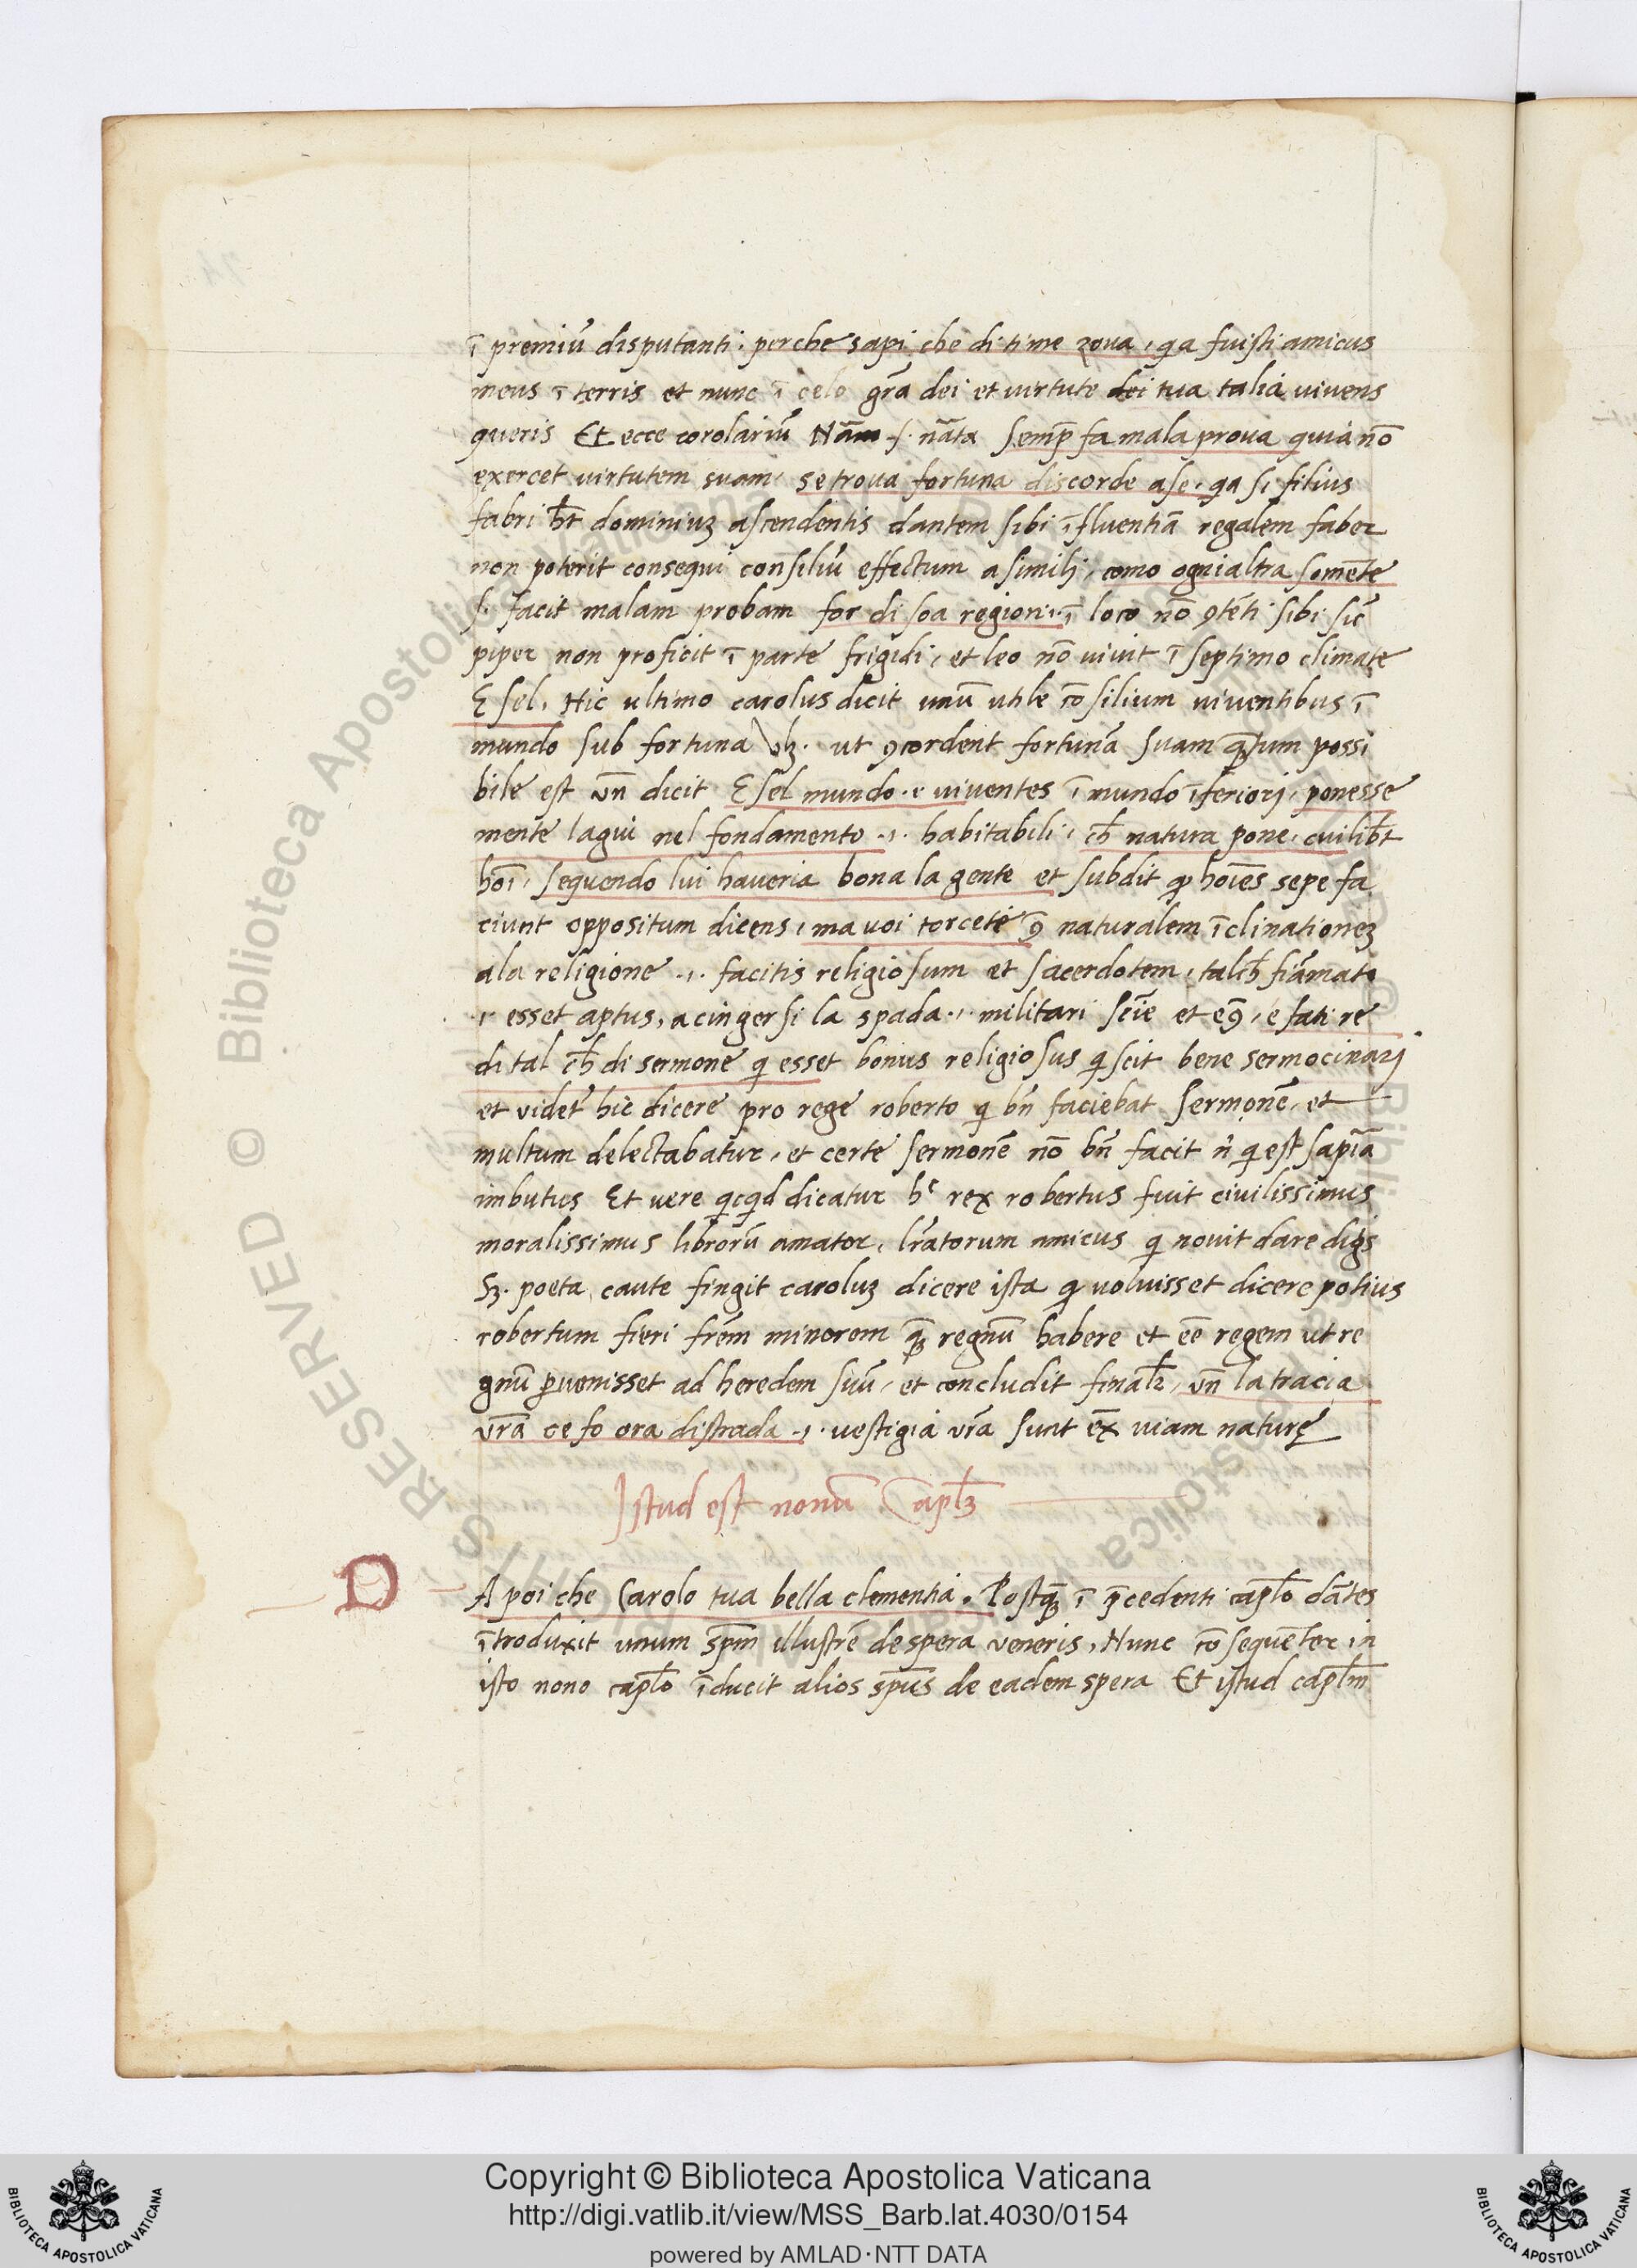 ī premiū disputanti. perche sapi che di time zova, qa fuisti amicus
meus ī terris et nunc ī celo grā dei et virtute dei tua talia vivens
queris Et ecce corolariū Nam .s. nāta semp̄ fa mala prova quia nō
exercet virtutem suam, se trova fortuna discorde ase, qa si filius
fabri hr̄t dominiuz ascendentis dantem sibi īfluentiā regalem faber
non poterit consequi consiliū effectum a similj, como ogni altra somēte
s. facit malam probam for di soa region .ı. ī loco nō ꝯtēti sibi sic̄
piper non proficit ī parte frigidi, et leo nō vivit ī septimo climate
E sel, Hic ultimo carolus dicit unū utile cōsilium viventibus ī
mundo sub fortuna vꝫ. ut ꝯcordent fortunā suam qꝫtum possi
bile est un̄ dicit E sel mundo .ı. viventes ī mundo īferiorj, ponesse
mente lagui nel fondamento .ı. habitabili, ch̄ natura pone, cuilibꝫ
hoī, sequendo lui haveria bona la gente et subdit qꝫ hoīes sepe fa
ciunt oppositum dicens, ma voi torcete ꝯ̄ naturalem īclinationeꝫ
ala religione .ı. facitis religiosum et sacerdotem, tal ch̄ fiā mato
.ı. esset aptus, a cingersi la spada .ı. militari scīe et eꝯ̄, e fati re
di tal ch̄ di sermone q̄ esset bonus religiosus q̄ scit bene sermocinarj
et videt̄ hic dicere pro rege roberto q̄ bn̄ faciebat sermonē, et
multum delectabatur, et certe sermonē nō bn̄ facit n̄ q̄ est sapīa
imbutus Et vere qcqd dicatur hᶜ rex robertus fuit civilissimus
moralissimus librorū amator, lr̄atorum amicus q̄ novit dare digīs
Sꝫ. poeta caute fingit caroluꝫ dicere ista q̄ voluisset dicere potius
robertum fieri frēm minorem qꝫ regnū habere et eē regem ut re
gnū pvenisset ad heredem suū, et concludit finalr̄, un̄ la tracia
vr̄a ce fo ora di strada .ı. vestigia vr̄a sunt ex̄ viam naturę
Istud est nonū Capl̄ꝫ
D A poi che Carolo tua bella clementia. Postqꝫ ī p̄cedenti capl̄o dātes
ītroduxit unum spm̄ illustrē de spera veneris, Nunc cōsequēter in
isto nono capl̄o īducit alios spūs de eadem spera Et istud capl̄m
© Biblioteca Apostolica Vaticana
RIGHTS RESERVED
Copyright © Biblioteca Apostolica Vaticana
http://digi.vatlib.it/view/MSS_Barb.lat.4030/0154
powered by AMLAD·NTT DATA
BIBLIOTECA APOSTOLICA VATICANA
BIBLIOTECA APOSTOLICA VATICANA